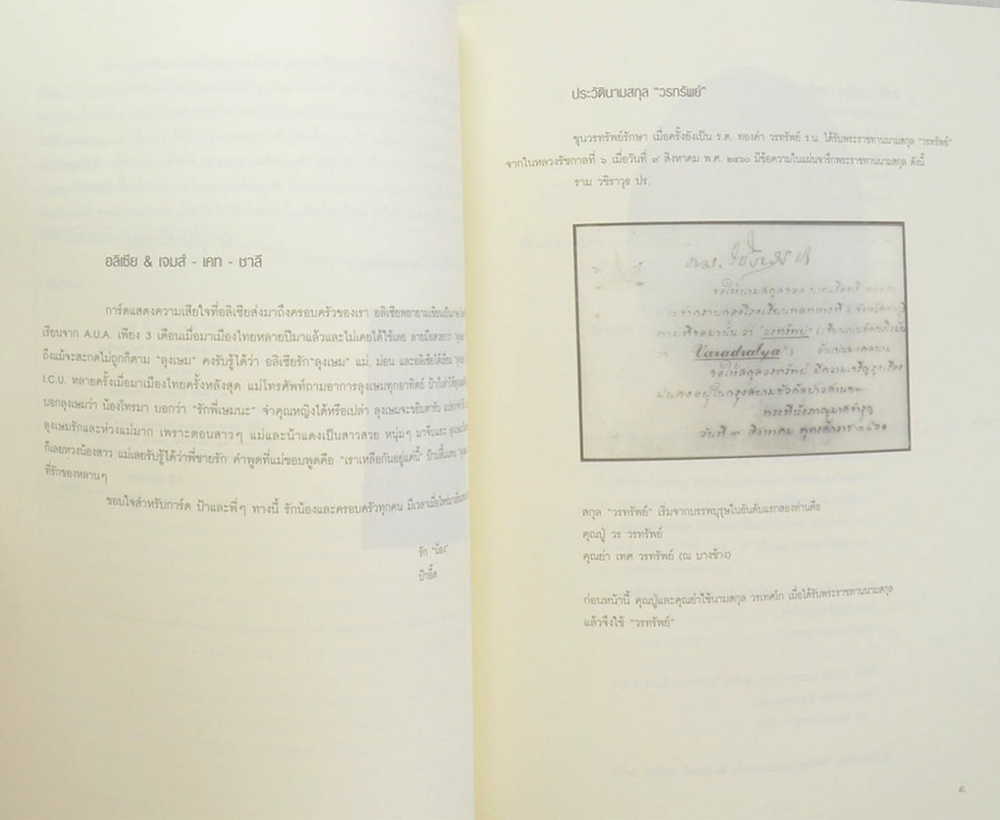 อลิเซีย & เจมส์ - เคท - ชาลี
การ์ดแสดงความเสียใจที่อลิเซียส่งมาถึงครอบครัวของเรา อลิเซียพยายามเขียนในภาษา
เรียนจาก A.U.A. เพียง 3 เดือนเมื่อมาเมืองไทยหลายปีมาแล้วและไม่เคยได้ใช้เลย
ถึงแม้จะสะกดไม่ถูกก็ตาม "ลุงเษม" คงรับรู้ได้ว่า อลิเซียรัก"ลุงเษม" แม่, ม่อน และอลิเซียได้เยี่ยม
I.C.U. หลายครั้งเมื่อมาเมืองไทยครั้งหลังสุด แม่โทรศัพท์ถามอาการลุงเษมทุกอาทิตย์
บอกลุงเษมว่า น้องโทรมา บอกว่า "รักพี่เษมนะ" จำคุณหญิงได้หรือเปล่า ลุงเษมจะขยับตารับ
ลุงเษมรักและห่วงแม่มาก เพราะตอนสาวๆ แม่และน้าแดงเป็นสาวสวย หนุ่มๆ มาจีบเยอะ
ก็เลยหวงน้องสาว แม่เลยรับรู้ได้ว่าพี่ชายรัก คำพูดที่แม่ชอบพูดคือ "เราเหลือกันอยู่แค่นี้"
ที่รักของหลานๆ
ขอบใจสำหรับการ์ด ป้าและพี่ๆ ทางนี้ รักน้องและครอบครัวทุกคน
รัก "น้อง"
ป้าอี๊ด
ประวัตินามสกุล "วรทรัพย์"
ขุนวรทรัพย์รักษา เมื่อครั้งยังเป็น ร.ต. ทองคำ วรทรัพย์ ร.น. ได้รับพระราชทานนามสกุล "วรทรัพย์"
จากในหลวงรัชกาลที่ ๖ เมื่อวันที่ ๙ สิงหาคม พ.ศ. ๒๔๖๐ มีข้อความในแผ่นจารึกพระราชทานนามสกุล ดังนี้
ราม วชิราวุธ ปร.
ขอให้นามสกุลของ นายเรือตรี
ตามที่ขอมานั้น ว่า "วรทรัพย์"
"Varadrabya") อันเป็นมงคลนาม
ขอให้สกุลวรทรัพย์ มีความเจริญรุ่งเรือง
มั่นคงอยู่ในกรุงสยามชั่วกัลปาวสานเทอญ
วันที่ ๙ สิงหาคม พุทธศักราช ๒๔๖๐
สกุล "วรทรัพย์" เริ่มจากบรรพบุรุษในอันดับแรกสองท่านคือ
คุณปู่ วร วรทรัพย์
คุณย่า เทศ วรทรัพย์ (ณ บางช้าง)
ก่อนหน้านี้ คุณปู่และคุณย่าใช้นามสกุล วรเทศโก เมื่อได้รับพระราชทานนามสกุล
แล้วจึงใช้ "วรทรัพย์"